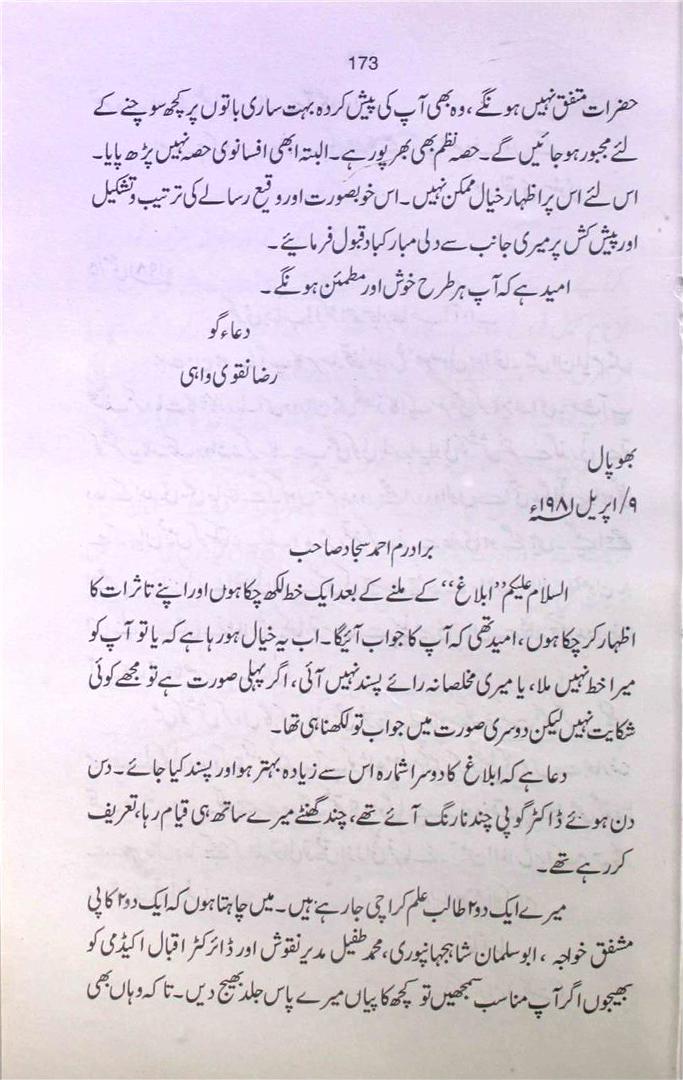 173
حضرات متفق نہیں ہونگے، وہ بھی آپ کی پیش کردہ بہت ساری باتوں پر کچھ سوچنے کے
لئے مجبور ہو جائیں گے۔ حصہ نظم بھی بھر پور ہے۔ البتہ ابھی افسانوی حصہ نہیں پڑھ پایا۔
اس لئے اس پر اظہار خیال ممکن نہیں۔ اس خوبصورت اور وقیع رسالے کی ترتیب و تشکیل
اور پیش کش پر میری جانب سے دلی مبارکباد قبول فرمائیے۔
امید ہے کہ آپ ہر طرح خوش اور مطمئن ہونگے۔
دعاء گو
رضا نقوی واہی
بھوپال
۹/ اپریل ۱۹۸۱ء
برادرم احمد سجاد صاحب
السلام علیکم "ابلاغ" کے ملنے کے بعد ایک خط لکھ چکا ہوں اور اپنے تاثرات کا
اظہار کر چکا ہوں، امید تھی کہ آپ کا جواب آئیگا۔ اب یہ خیال ہو رہا ہے کہ یا تو آپ کو
میرا خط نہیں ملا، یا میری مخلصانہ رائے پسند نہیں آئی، اگر پہلی صورت ہے تو مجھے کوئی
شکایت نہیں لیکن دوسری صورت میں جواب تو لکھنا ہی تھا۔
دعا ہے کہ ابلاغ کا دوسرا شمارہ اس سے زیادہ بہتر ہو اور پسند کیا جائے۔ دس
دن ہوئے ڈاکٹر گوپی چند نارنگ آئے تھے، چند گھنٹے میرے ساتھ ہی قیام رہا، تعریف
کر رہے تھے۔
میرے ایک دو ۲ طالب علم کراچی جا رہے ہیں۔ میں چاہتا ہوں کہ ایک دو ۲ کاپی
مشفق خواجہ، ابو سلمان شاہجہانپوری، محمد طفیل مدیر نقوش اور ڈائرکٹر اقبال اکیڈمی کو
بھیجوں اگر آپ مناسب سمجھیں تو کچھ کاپیاں میرے پاس جلد بھیج دیں۔ تاکہ وہاں بھی